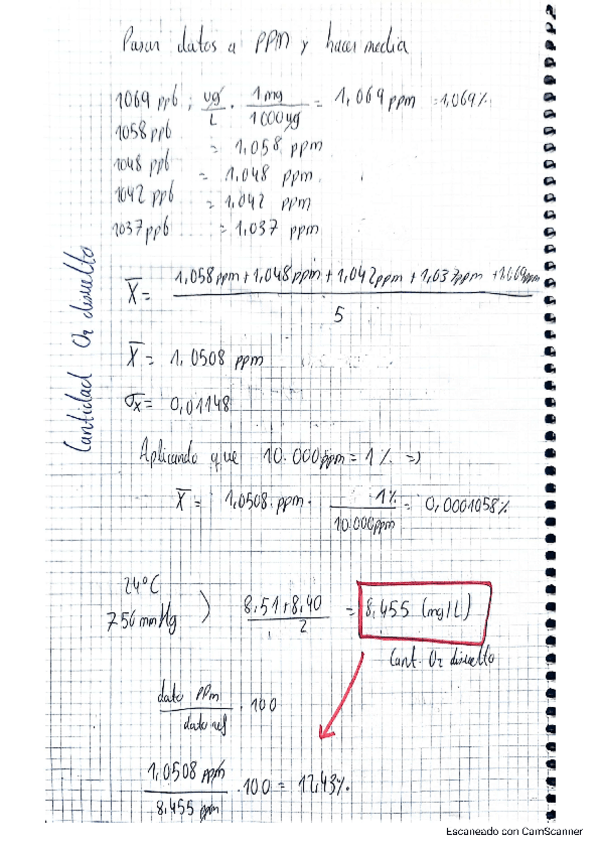 Pasar datos a PPM y hacer media
1069 ppb ; ug/L · 1 mg/1000 ug = 1,069 ppm = 1,069%
1058 ppb = 1,058 ppm
1048 ppb = 1,048 ppm
1042 ppb = 1,042 ppm
1037 ppb = 1,037 ppm
Cantidad O2 disuelto
X̄ = 1,058ppm+1,048ppm+1,042ppm+1,037ppm+1,069ppm
5
X̄ = 1,0508 ppm
σx = 0,01148
Aplicando que 10.000ppm = 1% =>
X̄ = 1,0508 ppm · 1%/10.000ppm = 0,0001058%
24ºC
756 mmHg ) 8,51+8,40/2 = 8,455 (mg/L)
Cant. O2 disuelto
dato PPm/dato ref · 100
1,0508 ppm/8,455 ppm · 100 = 12,43%.
Escaneado con CamScanner